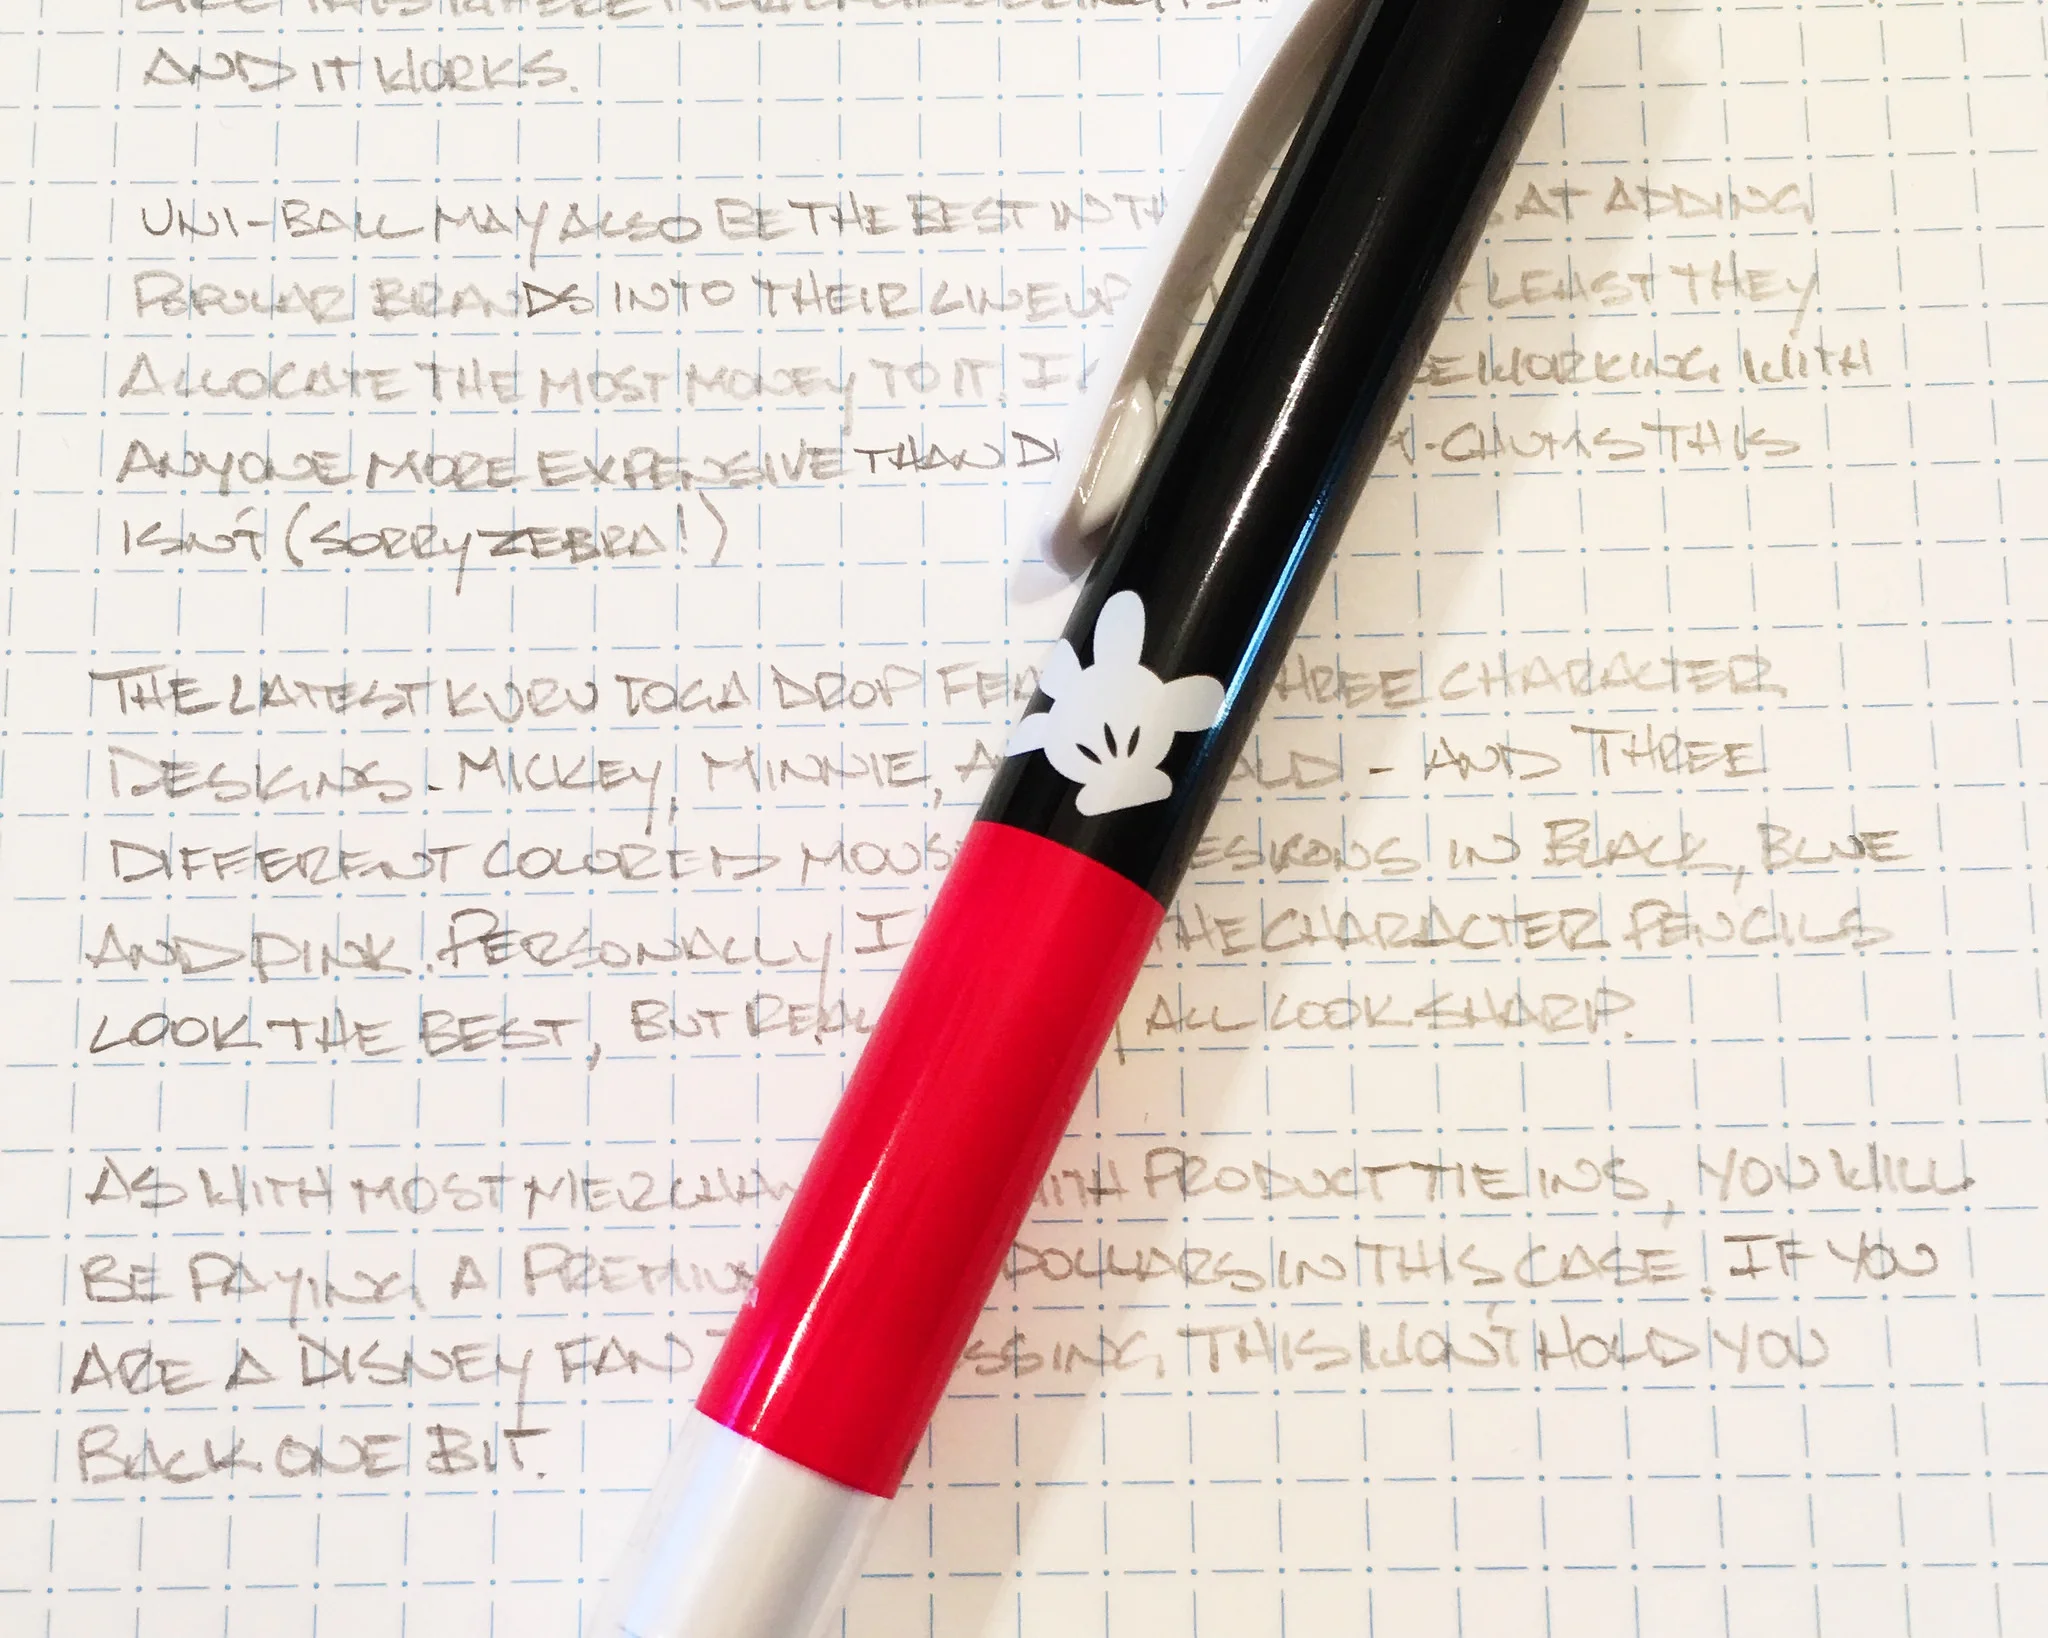 AND IT WORKS.
UNI-BALL MAY ALSO BE THE BEST IN AT ADDING
POPULAR BRANDS INTO THEIR LINEUP LEAST THEY
ALLOCATE THE MOST MONEY TO IT. WORKING WITH
ANYONE MORE EXPENSIVE THAN THIS
ISN'T (SORRY ZEBRA!)
THE LATEST KURU TOGA DROP THREE CHARACTER
DESIGNS - MICKEY, MINNIE, - AND THREE
DIFFERENT COLORED IN BLACK, BLUE
AND PINK. PERSONALLY I THE CHARACTER PENCILS
LOOK THE BEST, BUT ALL LOOK SHARP.
AS WITH MOST WITH PRODUCT TIE INS, YOU WILL
BE PAYING A DOLLARS IN THIS CASE. IF YOU
ARE A DISNEY FAN THIS WON'T HOLD YOU
BACK ONE BIT.